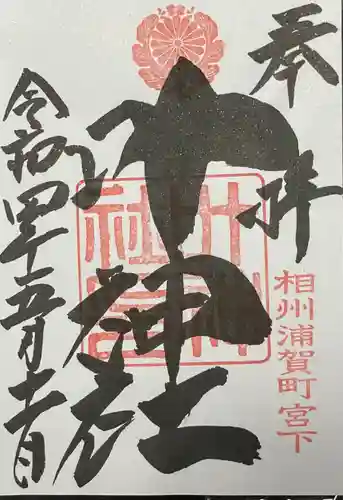 奉拝
相州浦賀町宮下
叶神社
令和四年五月十一日